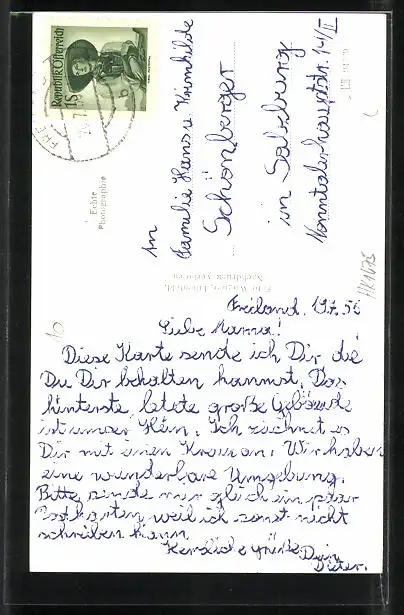 Republik Österreich
1S
Echte
Photographie
An
Familie Hans u. Krimhilde
Schönberger
in Salzburg
Nonntalerhauptstr. 141/II
Nachdruck verboten
Freiland, 19.7.56
Liebe Mama!
Diese Karte sende ich Dir die
Du Dir behalten kannst. Das
hinterste letzte große Gebäude
ist unser Heim. Ich zeichnet es
Dir mit einen Kreuz an. Wir haben
eine wunderbare Umgebung.
Bitte sende mir gleich ein paar
Postkarten weil ich sonst nicht
schreiben kann.
Herzliche Grüße Dein
Dieter.